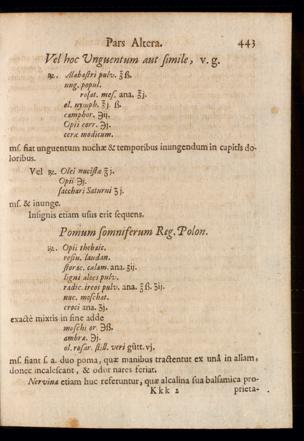 Pars Altera. 443
Vel hoc Unguentum aut simile, v. g.
℞. Alabastri pulv. ℥ß.
ung. popul.
rosat. mes. ana. ℥j.
ol. nymph. ʒj. ß.
camphor. ℈ij.
Opii corr. ℈j.
ceræ modicum.
ms. fiat unguentum nuchæ & temporibus inungendum in capitis do-
loribus.
Vel ℞. Olei nucistæ ʒj.
Opii ℈j.
sacchari Saturni ʒj.
ms. & inunge.
Insignis etiam usus erit sequens.
Pomum somniferum Reg. Polon.
℞. Opii thebaic.
resin. laudan.
storac. calam. ana. ʒij.
ligni aloes pulv.
radic. ireos pulv. ana. ℥ß. ʒij.
nuc. moschat.
croci ana. ʒj.
exactè mixtis in fine adde
moschi or. ℈ß.
ambræ. ℈j.
ol. rosar. still. veri gutt. vj.
ms. fiant s. a. duo poma, quæ manibus tractentur ex unâ in aliam,
donec incalescant, & odor nares feriat.
Nervina etiam huc referuntur, quæ alcalina sua balsamica pro-
Kkk 2 prieta-